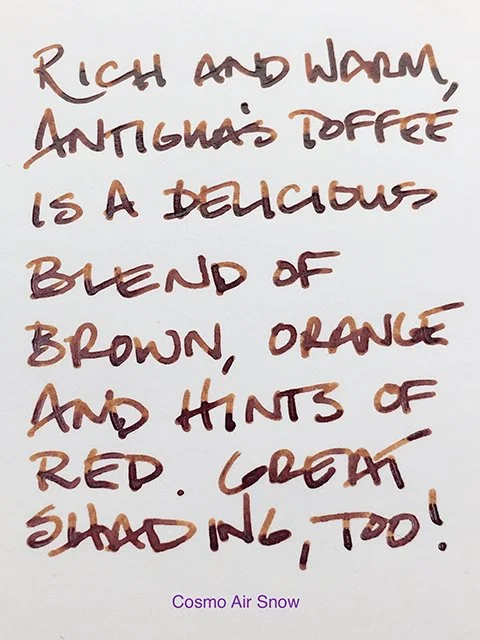 RICH AND WARM,
ANTIGUA'S TOFFEE
IS A DELICIOUS
BLEND OF
BROWN, ORANGE
AND HINTS OF
RED. GREAT
SHADING, TOO!
Cosmo Air Snow